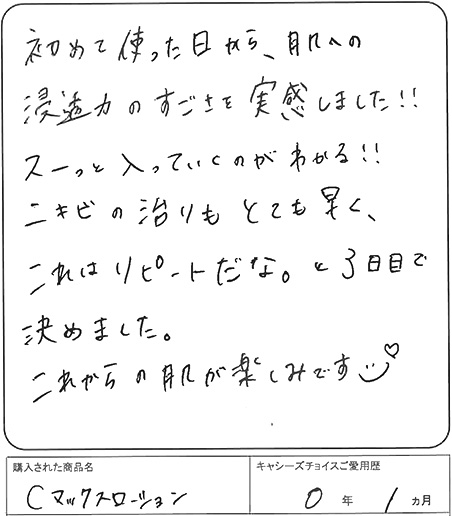 初めて使った日から、肌への
浸透力のすごさを実感しました!!
スーっと入っていくのがわかる!!
ニキビの治りもとても早く、
これはリピートだな。と3日目で
決めました。
これからの肌が楽しみです
購入された商品名
Cマックスローション
キャシーズチョイスご愛用歴
0年 1ヵ月